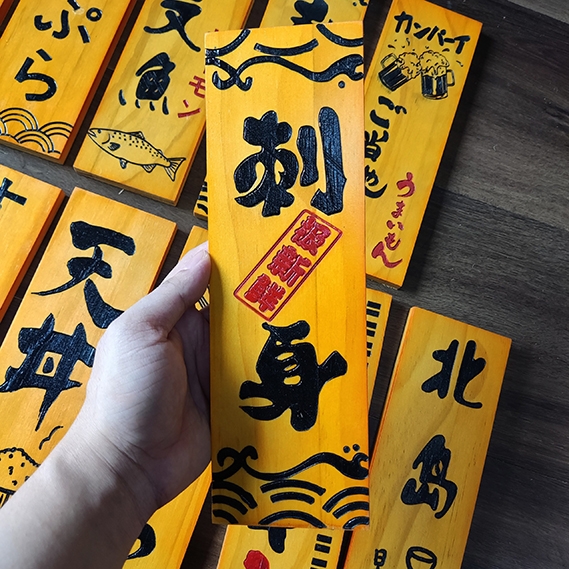 ぷら
魚
モン
刺身
カンパーイ
ご当地
うまいもん
天丼
北島